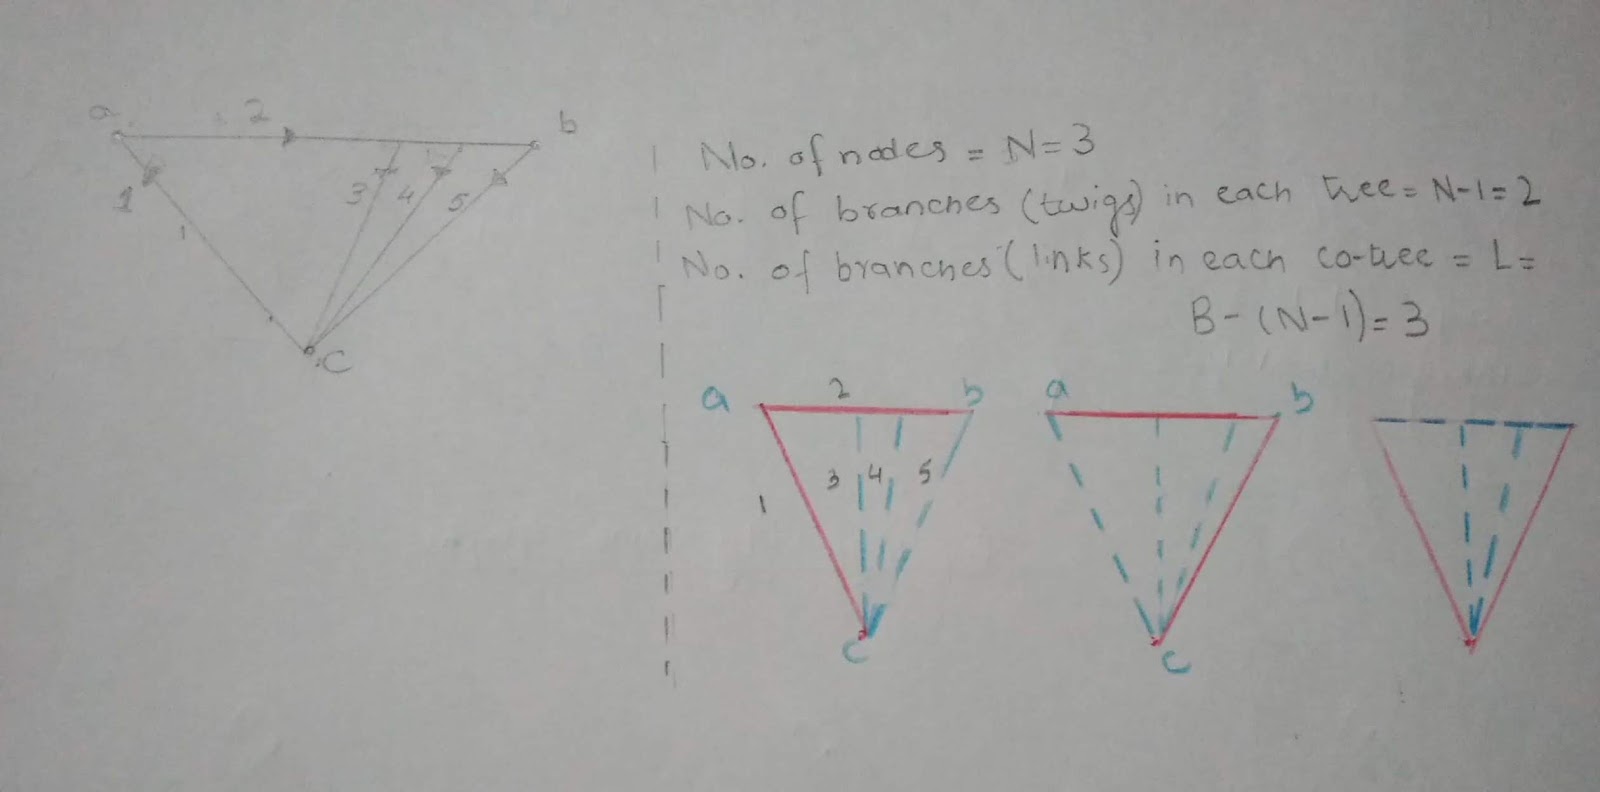 a 2 b
1 3 4 5
1
C
No. of nodes = N=3
No. of branches (twigs) in each tree = N-1=2
No. of branches (links) in each co-tree = L=
B-(N-1)=3
a 2 b a b
1 3 4 5
C C